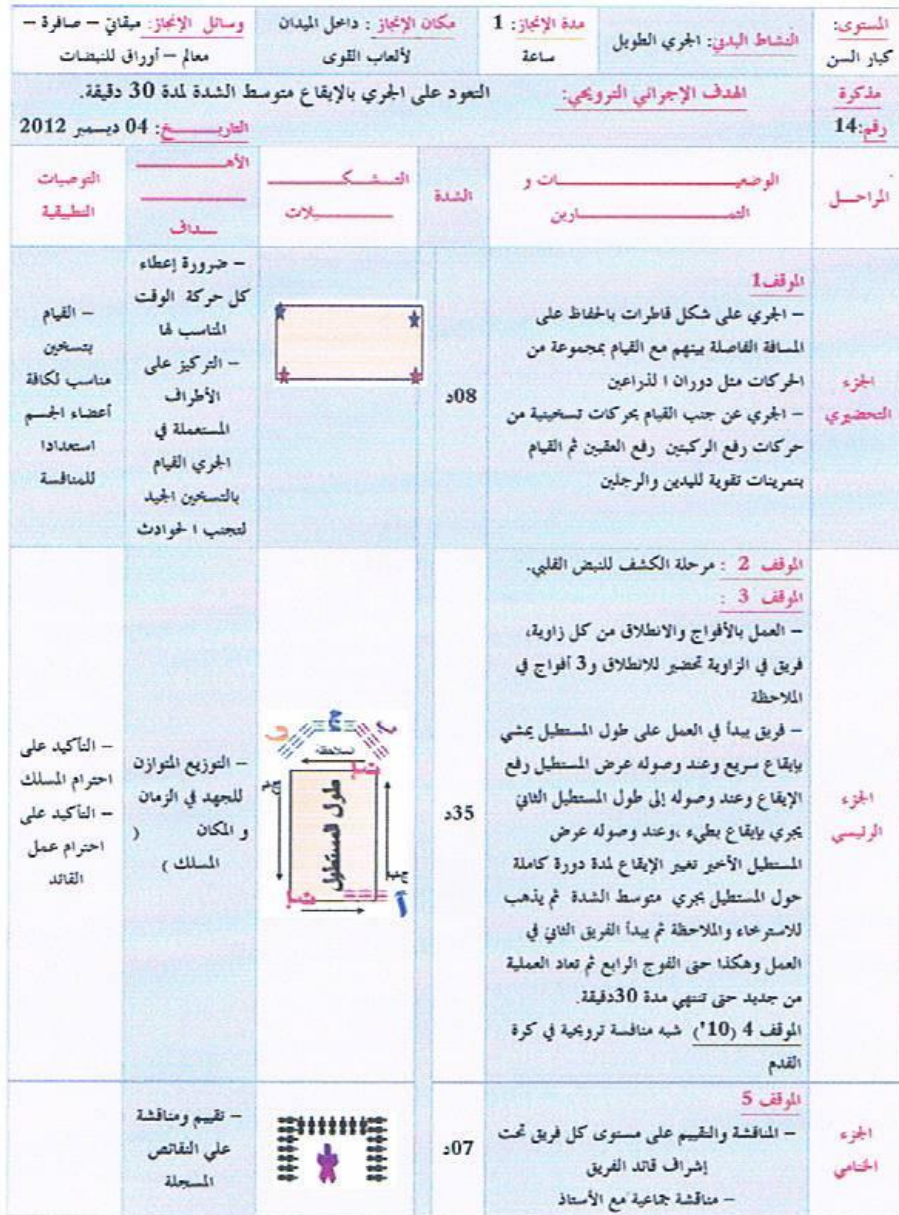 المستوى:
كبار السن
النشاط البدني: الجري الطويل
مدة الإنجاز: 1
ساعة
مكان الإنجاز : داخل الميدان
لألعاب القوى
وسائل الإنجاز: ميقاتي – صافرة –
معالم – أوراق للنبضات
مذكرة
رقم:14
الهدف الإجرائي الترويحي:
التعود على الجري بالإيقاع متوسط الشدة لمدة 30 دقيقة.
التاريـــــخ: 04 ديسمبر 2012
المراحـــل
الوضعيـــــــــــــات و
التمـــــــــــــارين
الشدة
التـــشـــكـــــــــــ
ــــــــــيلات
الأهــــــــــ
ــــــــــ
ــــداف
التوصيات
التطبيقية
الجزء
التحضيري
الموقف1
– الجري على شكل قاطرات بالحفاظ على
المسافة الفاصلة بينهم مع القيام بمجموعة من
الحركات مثل دوران ا لذراعين
– الجري عن جنب القيام بحركات تسخينية من
حركات رفع الركبتين رفع العقبين ثم القيام
بتمرينات تقوية لليدين والرجلين
08د
– ضرورة إعطاء
كل حركة الوقت
المناسب لها
– التركيز على
الأطراف
المستعملة في
الجري القيام
بالتسخين الجيد
لتجنب ا لحوادث
– القيام
بتسخين
مناسب لكافة
أعضاء الجسم
استعدادا
للمنافسة
الجزء
الرئيسي
الموقف 2 : مرحلة الكشف للنبض القلبي.
الموقف 3 :
– العمل بالأفواج والانطلاق من كل زاوية،
فريق في الزاوية تحضير للانطلاق و3 أفواج في
الملاحظة
– فريق يبدأ في العمل على طول المستطيل بمشي
بإيقاع سريع وعند وصوله عرض المستطيل رفع
الإيقاع وعند وصوله إلى طول المستطيل الثاني
يجري بإيقاع بطيء ،وعند وصوله عرض
المستطيل الأخير تغير الإيقاع لمدة دورة كاملة
حول المستطيل بجري متوسط الشدة ثم يذهب
للاسترخاء والملاحظة ثم يبدأ الفريق الثاني في
العمل وهكذا حتى الفوج الرابع ثم تعاد العملية
من جديد حتى تنتهي مدة 30دقيقة.
الموقف 4 (10') شبه منافسة ترويحية في كرة
القدم
35د
الملاحظة
طول المستطيل
أ
– التوزيع المتوازن
للجهد في الزمان
و المكان (
المسلك )
– التأكيد على
احترام المسلك
– التأكيد على
احترام عمل
القائد
الجزء
الختامي
الموقف 5
– المناقشة والتقييم على مستوى كل فريق تحت
إشراف قائد الفريق
– مناقشة جماعية مع الأستاذ
07د
– تقييم ومناقشة
علي النقائص
المسجلة